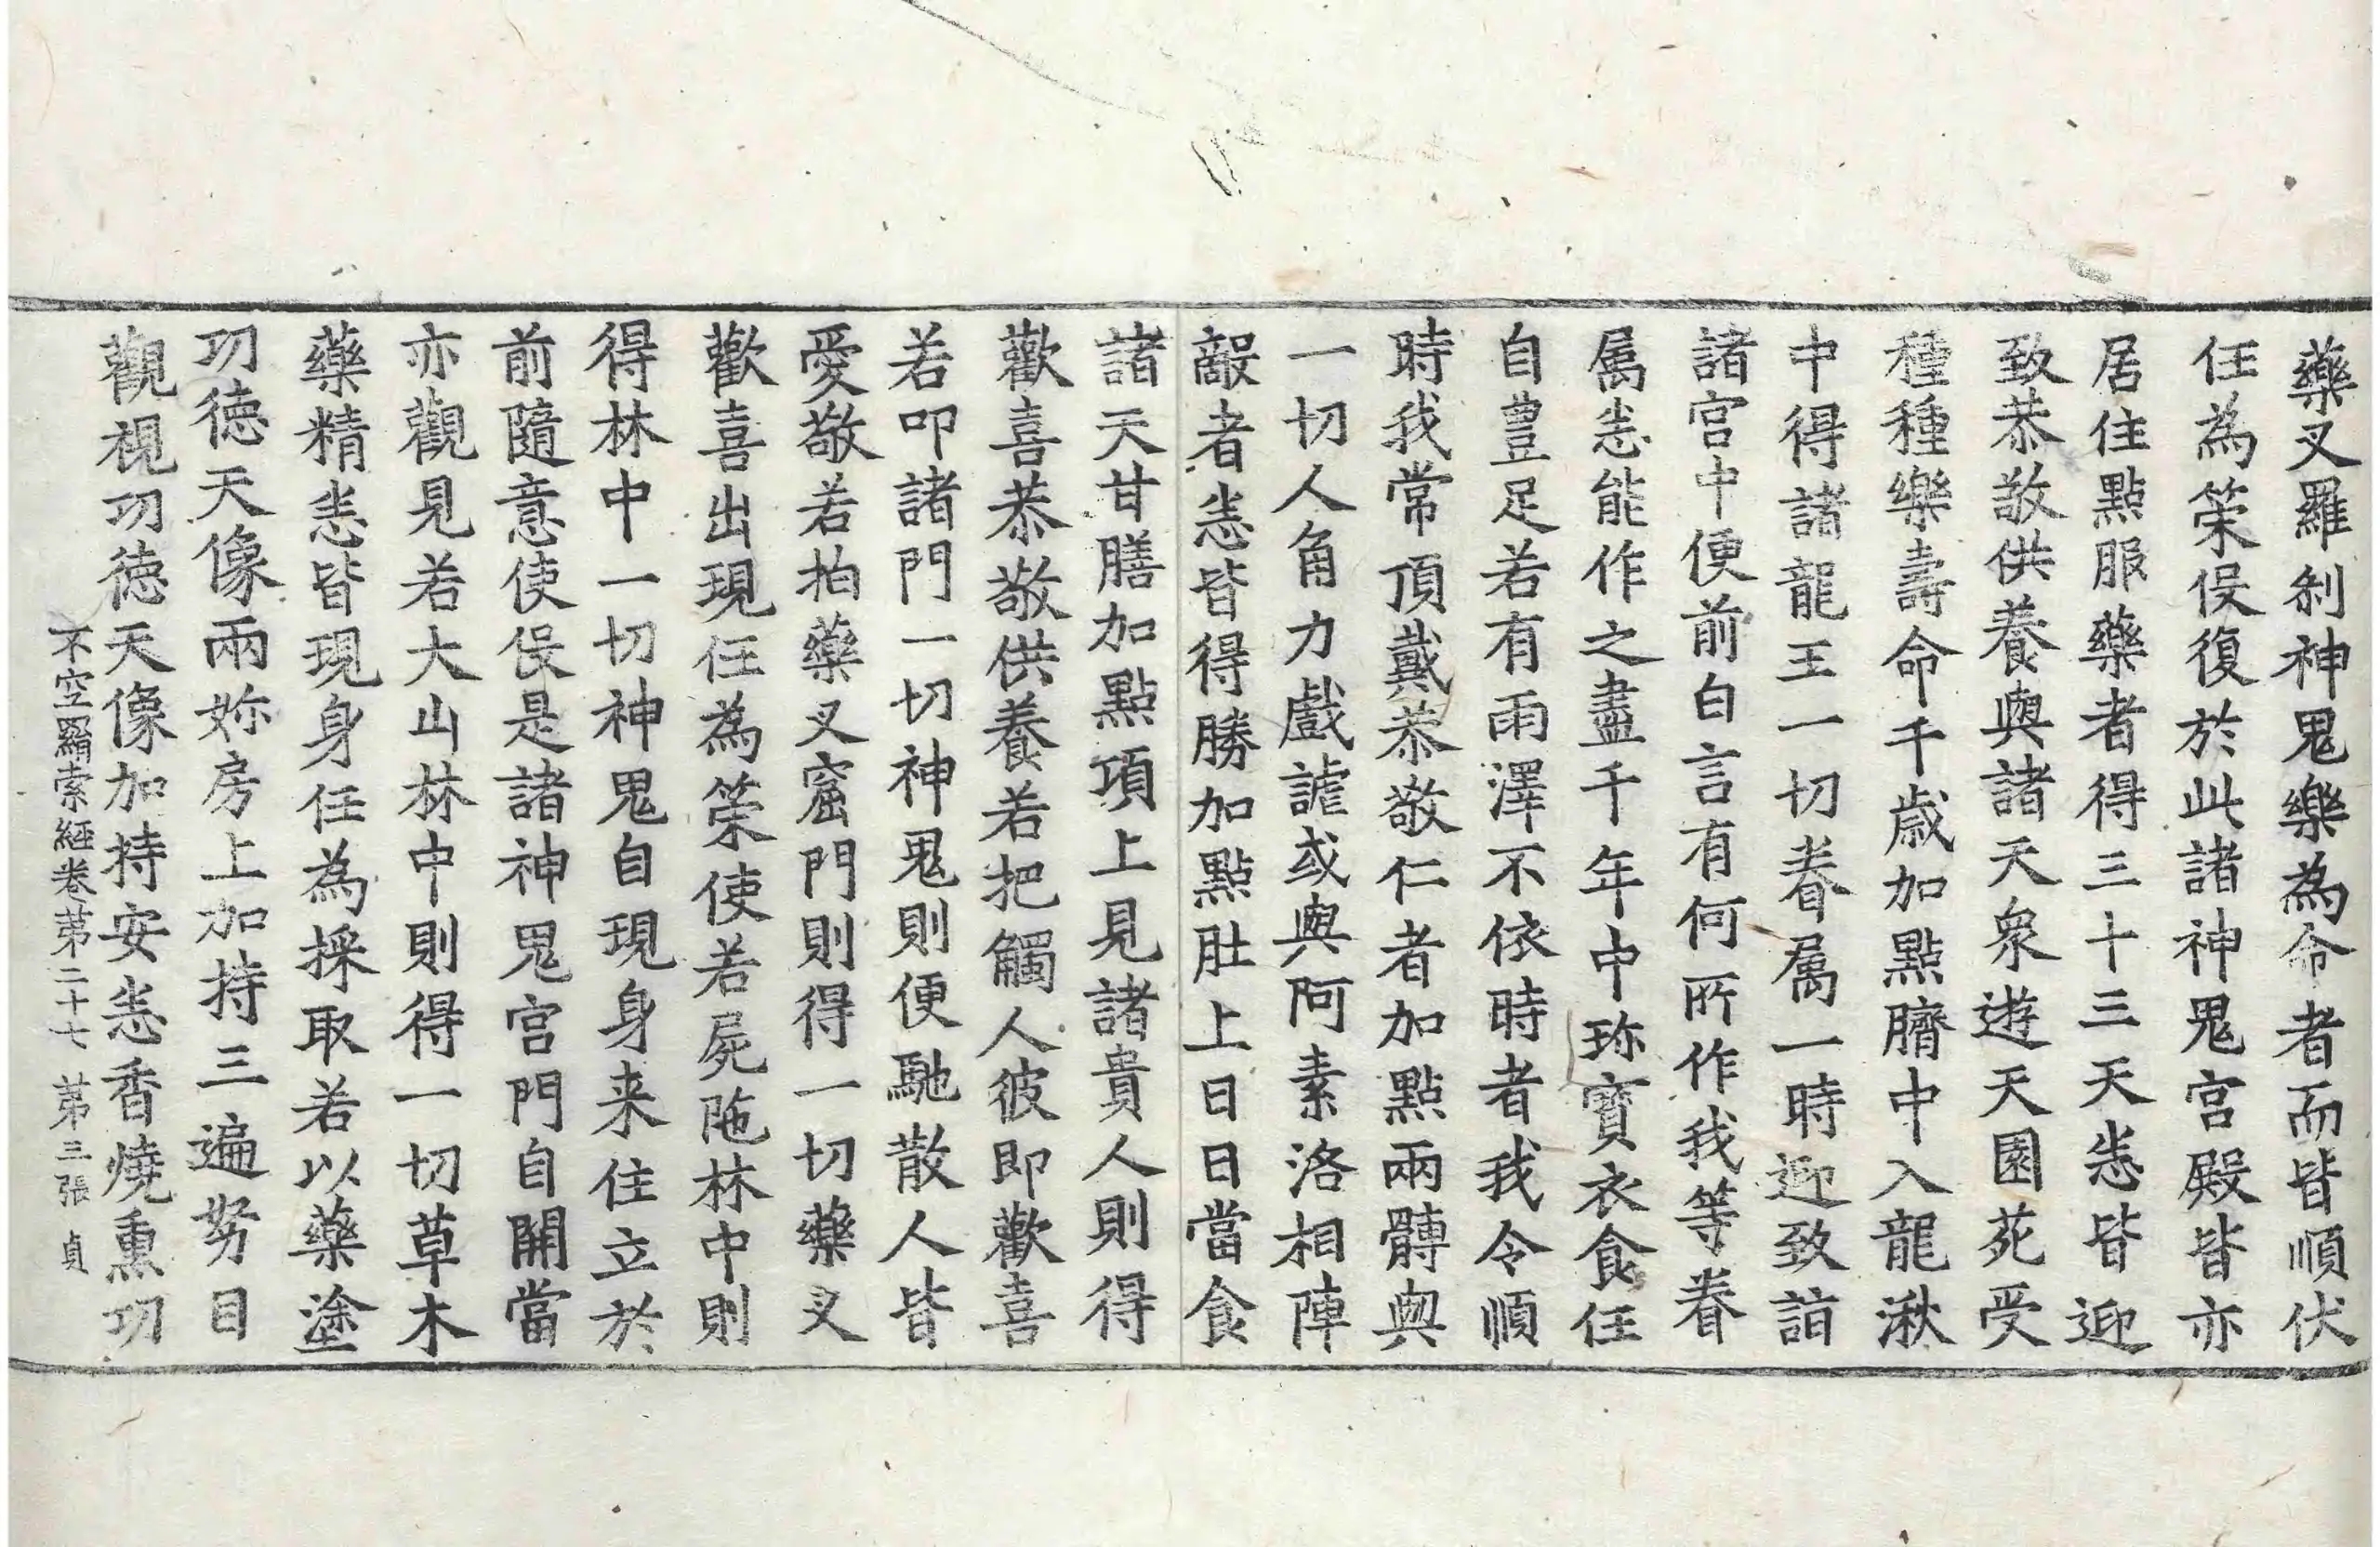 藥叉羅刹神鬼樂為命者而皆順伏
任為策伇復於此諸神鬼宮殿皆亦
居住點服藥者得三十三天悉皆迎
致恭敬供養與諸天衆遊天園苑受
種種樂壽命千歲加點臍中入龍湫
中得諸龍王一切眷屬一時迎致詣
諸宮中便前白言有何所作我等眷
屬悉能作之盡千年中珎寶衣食任
自豊足若有雨澤不依時者我令順
時我常頂戴恭敬仁者加點兩髆與
一切人角力戲謔或與阿素洛相陣
敵者悉皆得勝加點肚上日日當食
諸天甘膳加點項上見諸貴人則得
歡喜恭敬供養若把觸人彼即歡喜
若叩諸門一切神鬼則便馳散人皆
愛敬若拍藥叉窟門則得一切藥叉
歡喜出現任為策使若屍陁林中則
得林中一切神鬼自現身来住立於
前隨意使伇是諸神鬼宮門自開當
亦觀見若大山林中則得一切草木
藥精悉皆現身任為採取若以藥塗
功徳天像兩妳房上加持三遍努目
觀視功徳天像加持安悉香燒熏功
不空羂索經卷第二十七 第三張 貞